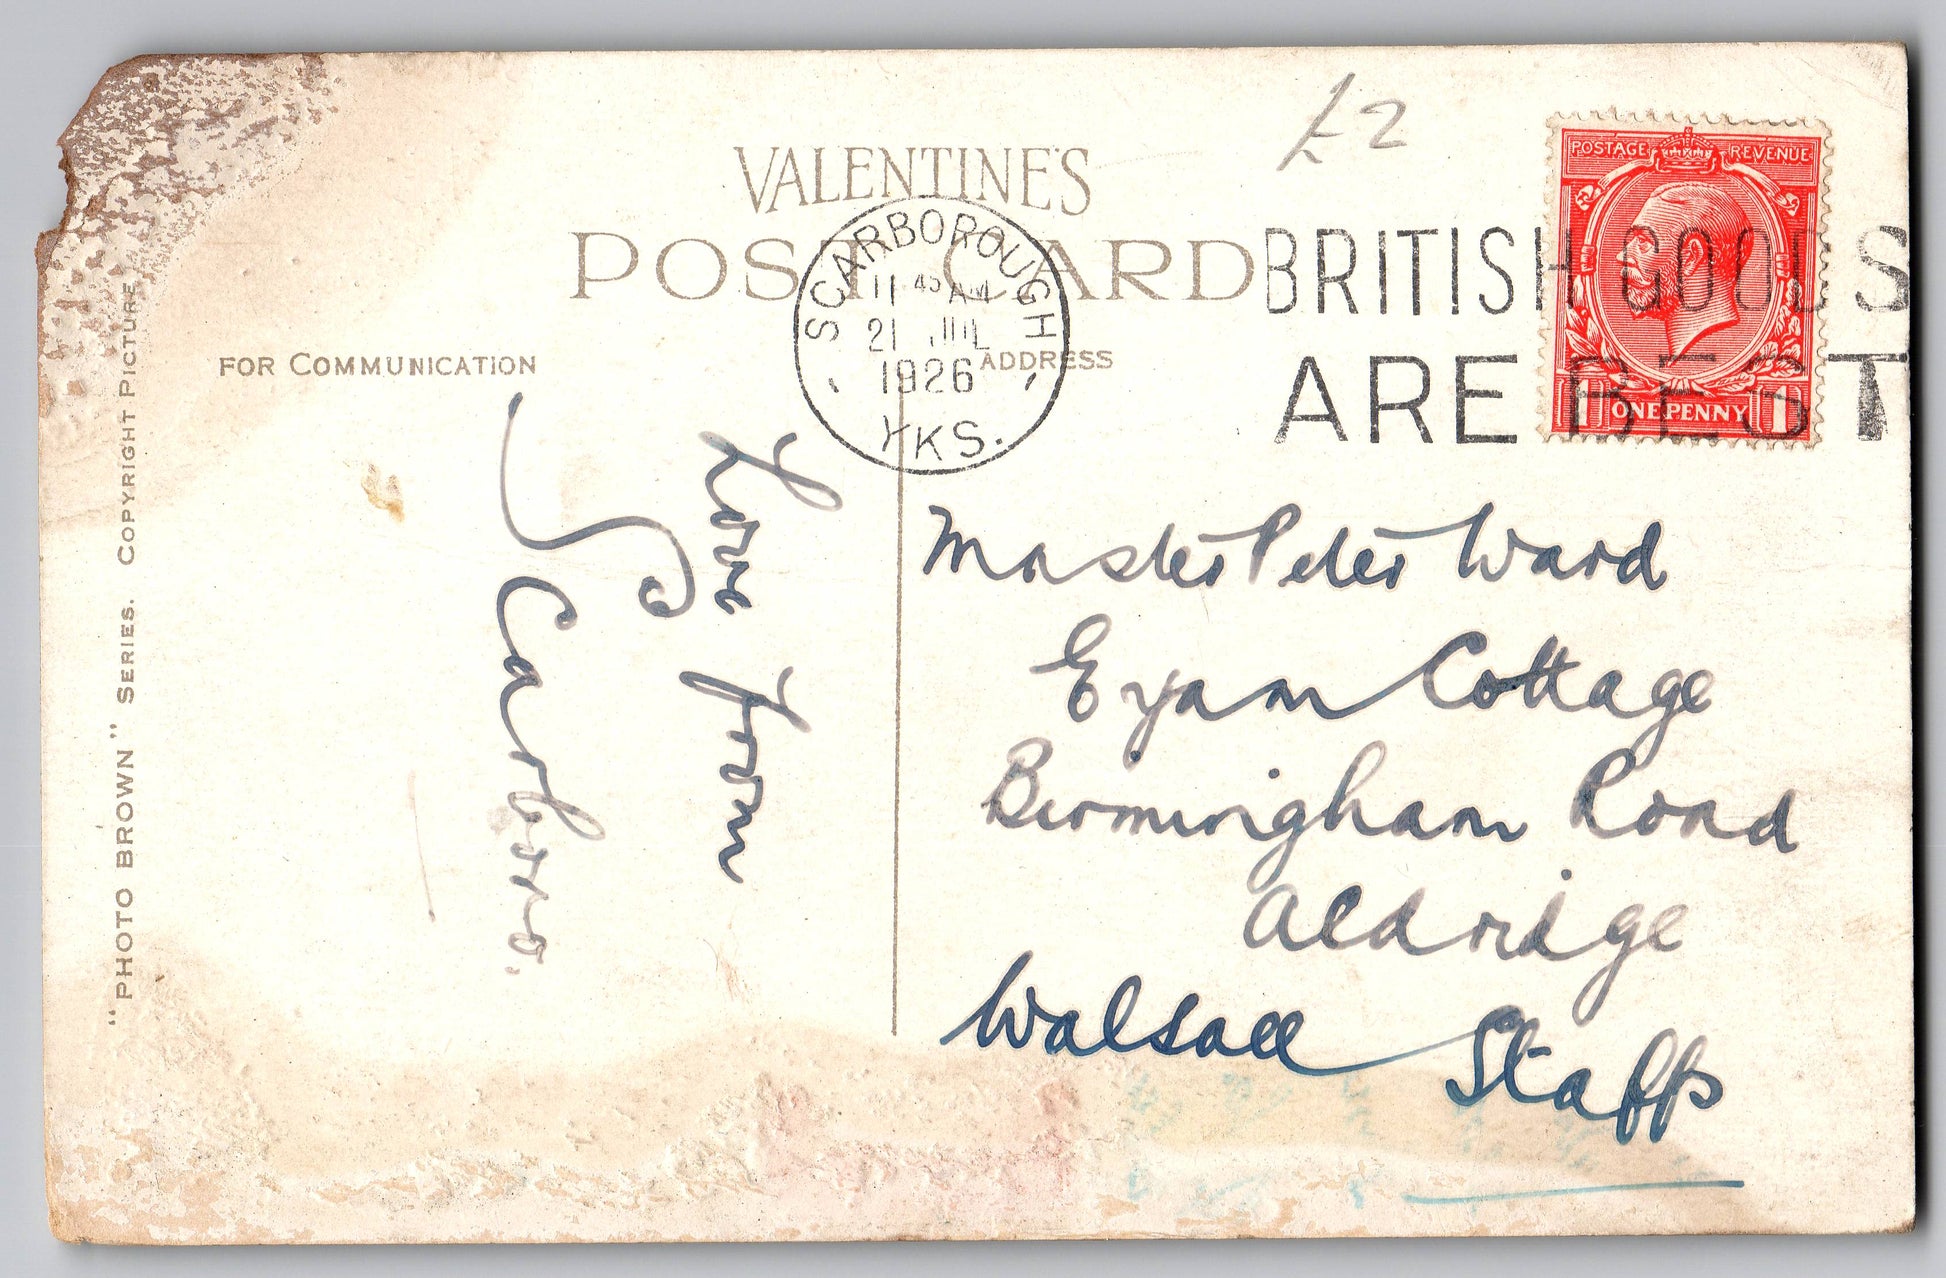 £2
VALENTINE'S
POST CARD
FOR COMMUNICATION
ADDRESS
SCARBOROUGH
11 45 AM
21 JUL
1926
YKS.
BRITISH GOODS
ARE BEST
POSTAGE REVENUE
1 ONE PENNY 1
Love from
Scarboro.
Master Peter Ward
Eyam Cottage
Birmingham Road
Aldridge
Walsall Staffs
"PHOTO BROWN" SERIES. COPYRIGHT PICTURE